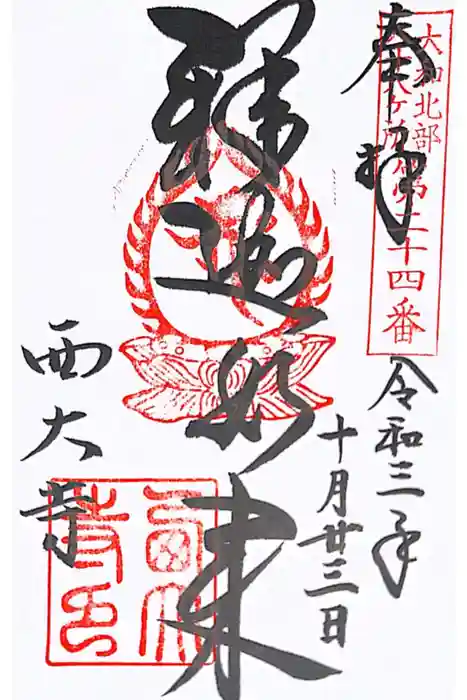 奉拝
大和北部
八十八ヶ所第三十四番
令和三年
十月廿三日
釋迦如来
西大寺
西大寺印